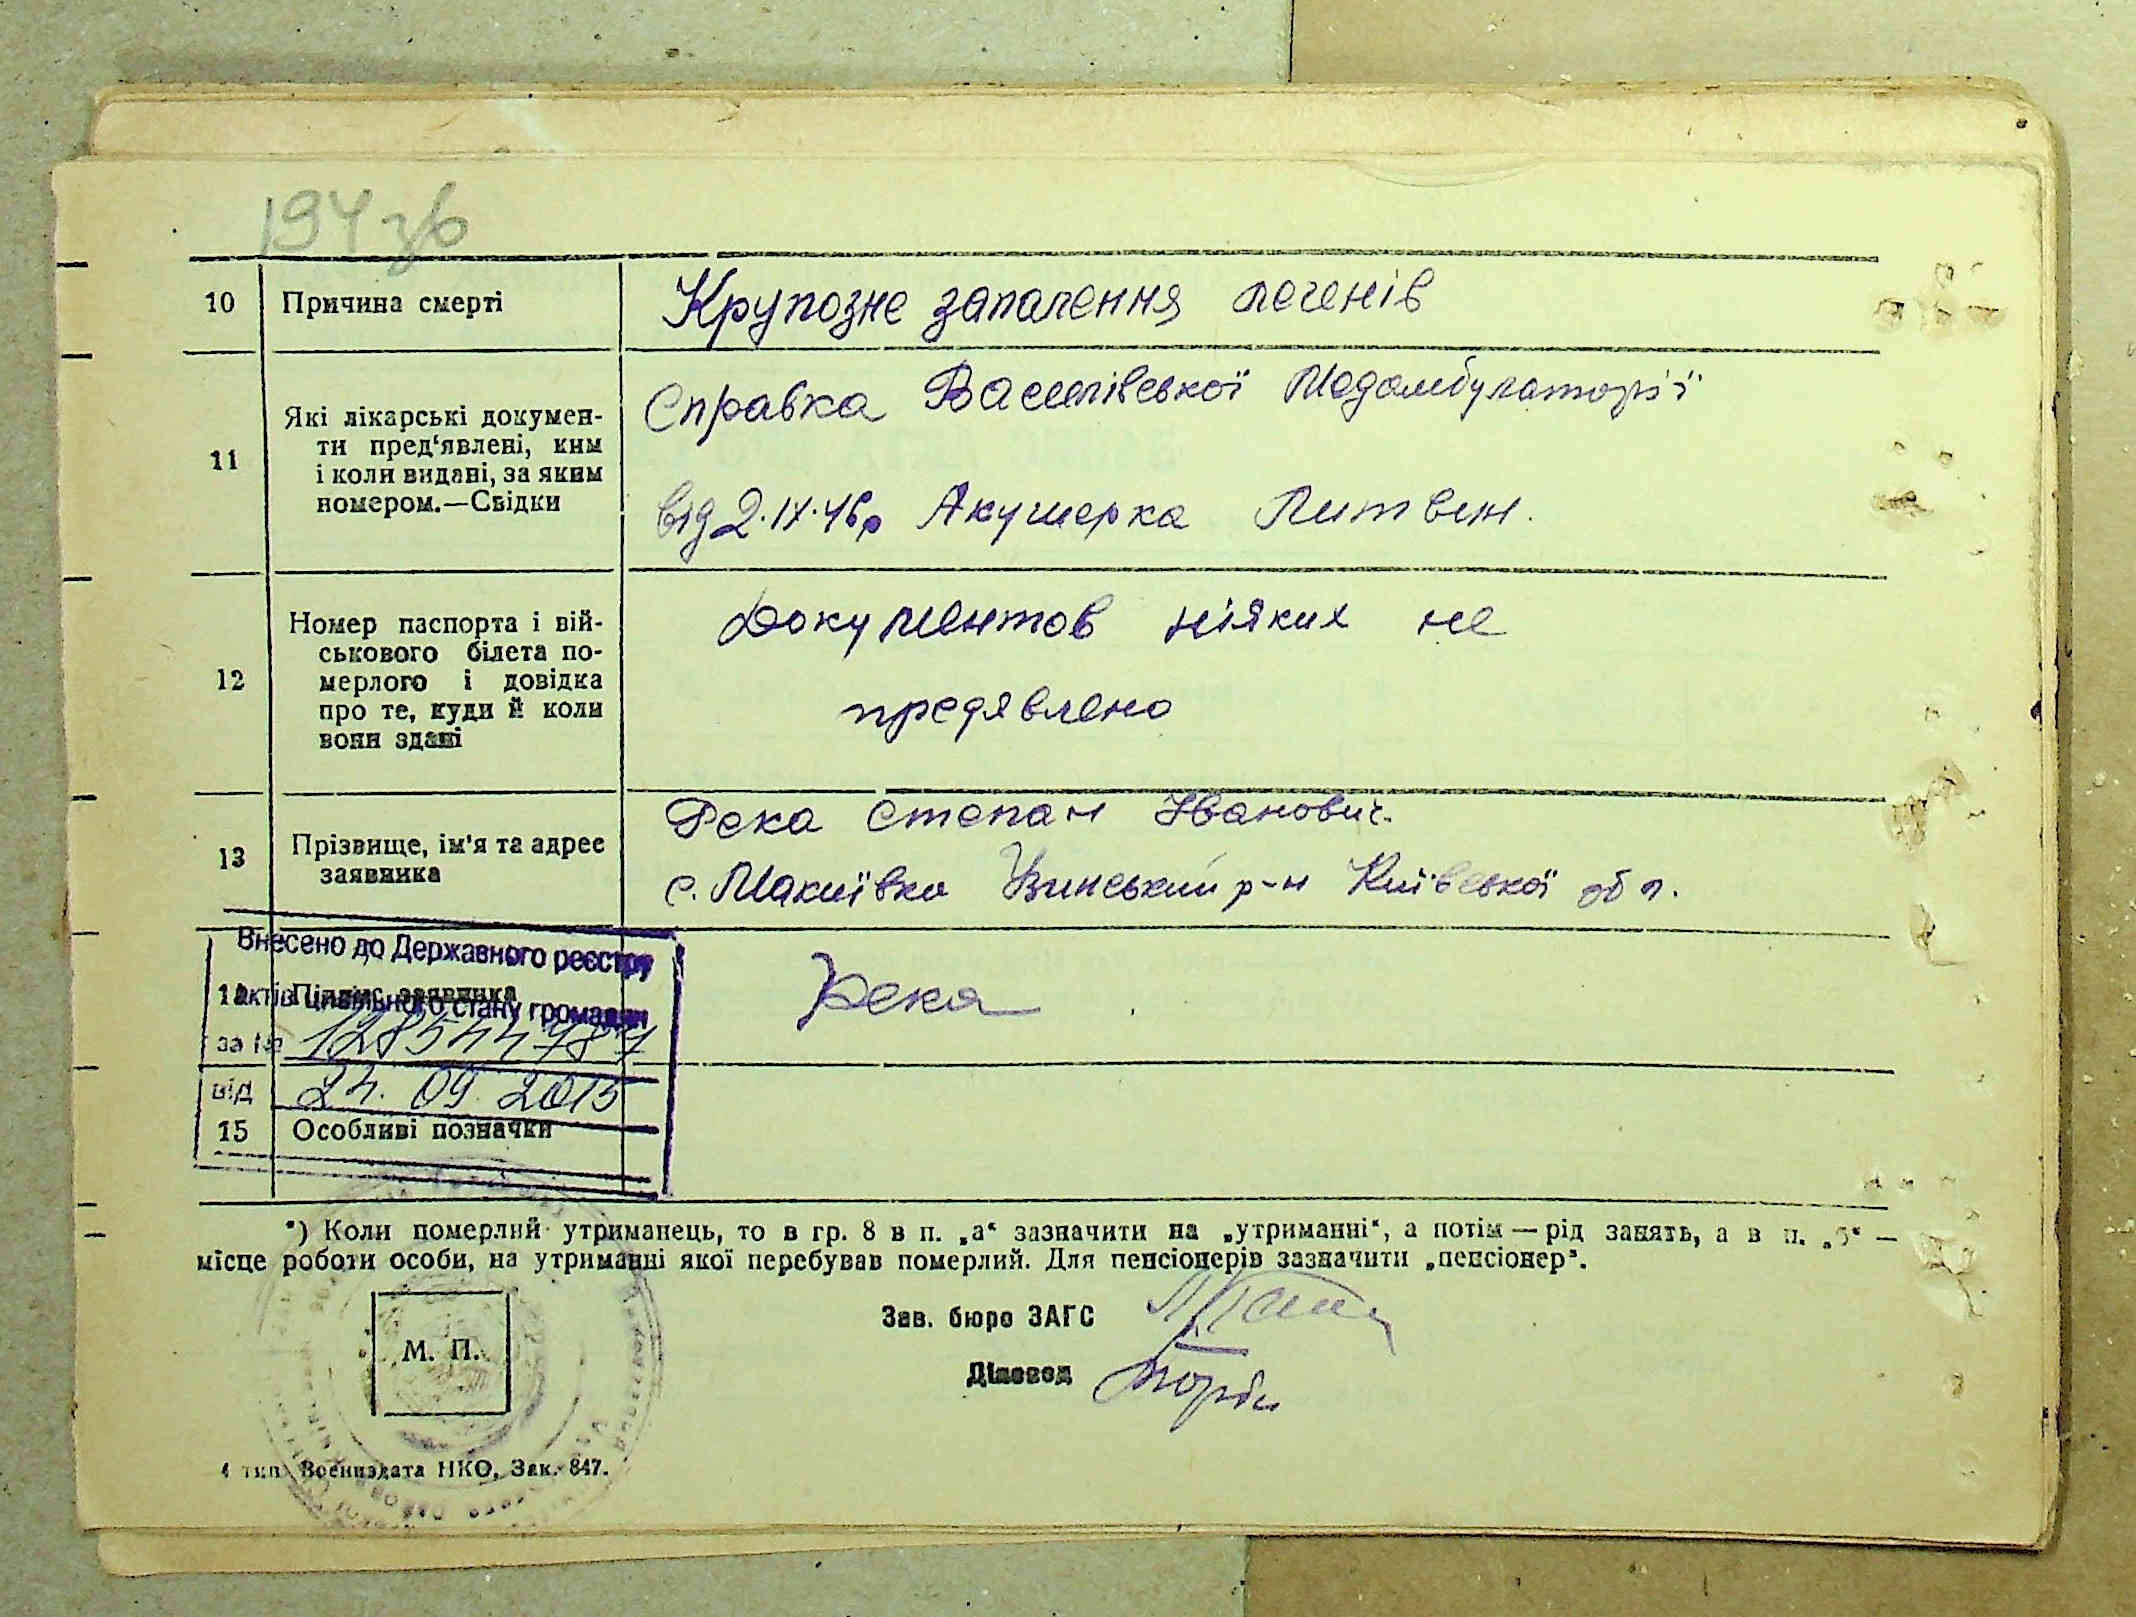 194 зв
10 Причина смерті Крупозне запалення легенів
11 Які лікарські докумен-
ти пред'явлені, ким
і коли видані, за яким
номером.—Свідки
Справка Василівської Медамбулаторії
від 2.IX.46р Акушерка Литвин.
12 Номер паспорта і вій-
ськового білета по-
мерлого і довідка
про те, куди й коли
вони здані
Документов ніяких не
предявлено
13 Прізвище, ім'я та адрес
заявника
Река Степан Іванович.
с. Макиївка Узинський р-н Київської обл.
14 Підпис заявника Река
Внесено до Державного реєстру
актів цивільного стану громадян
за № 128544787
від 24.09.2015
15 Особливі позначки
*) Коли померлий утриманець, то в гр. 8 в п. „а“ зазначити на „утриманні“, а потім — рід занять, а в п. „б“ —
місце роботи особи, на утриманні якої перебував померлий. Для пенсіонерів зазначити „пенсіонер“.
М. П.
Зав. бюро ЗАГС
Діловод
4 тип. Воениздата НКО, Зак. 847.